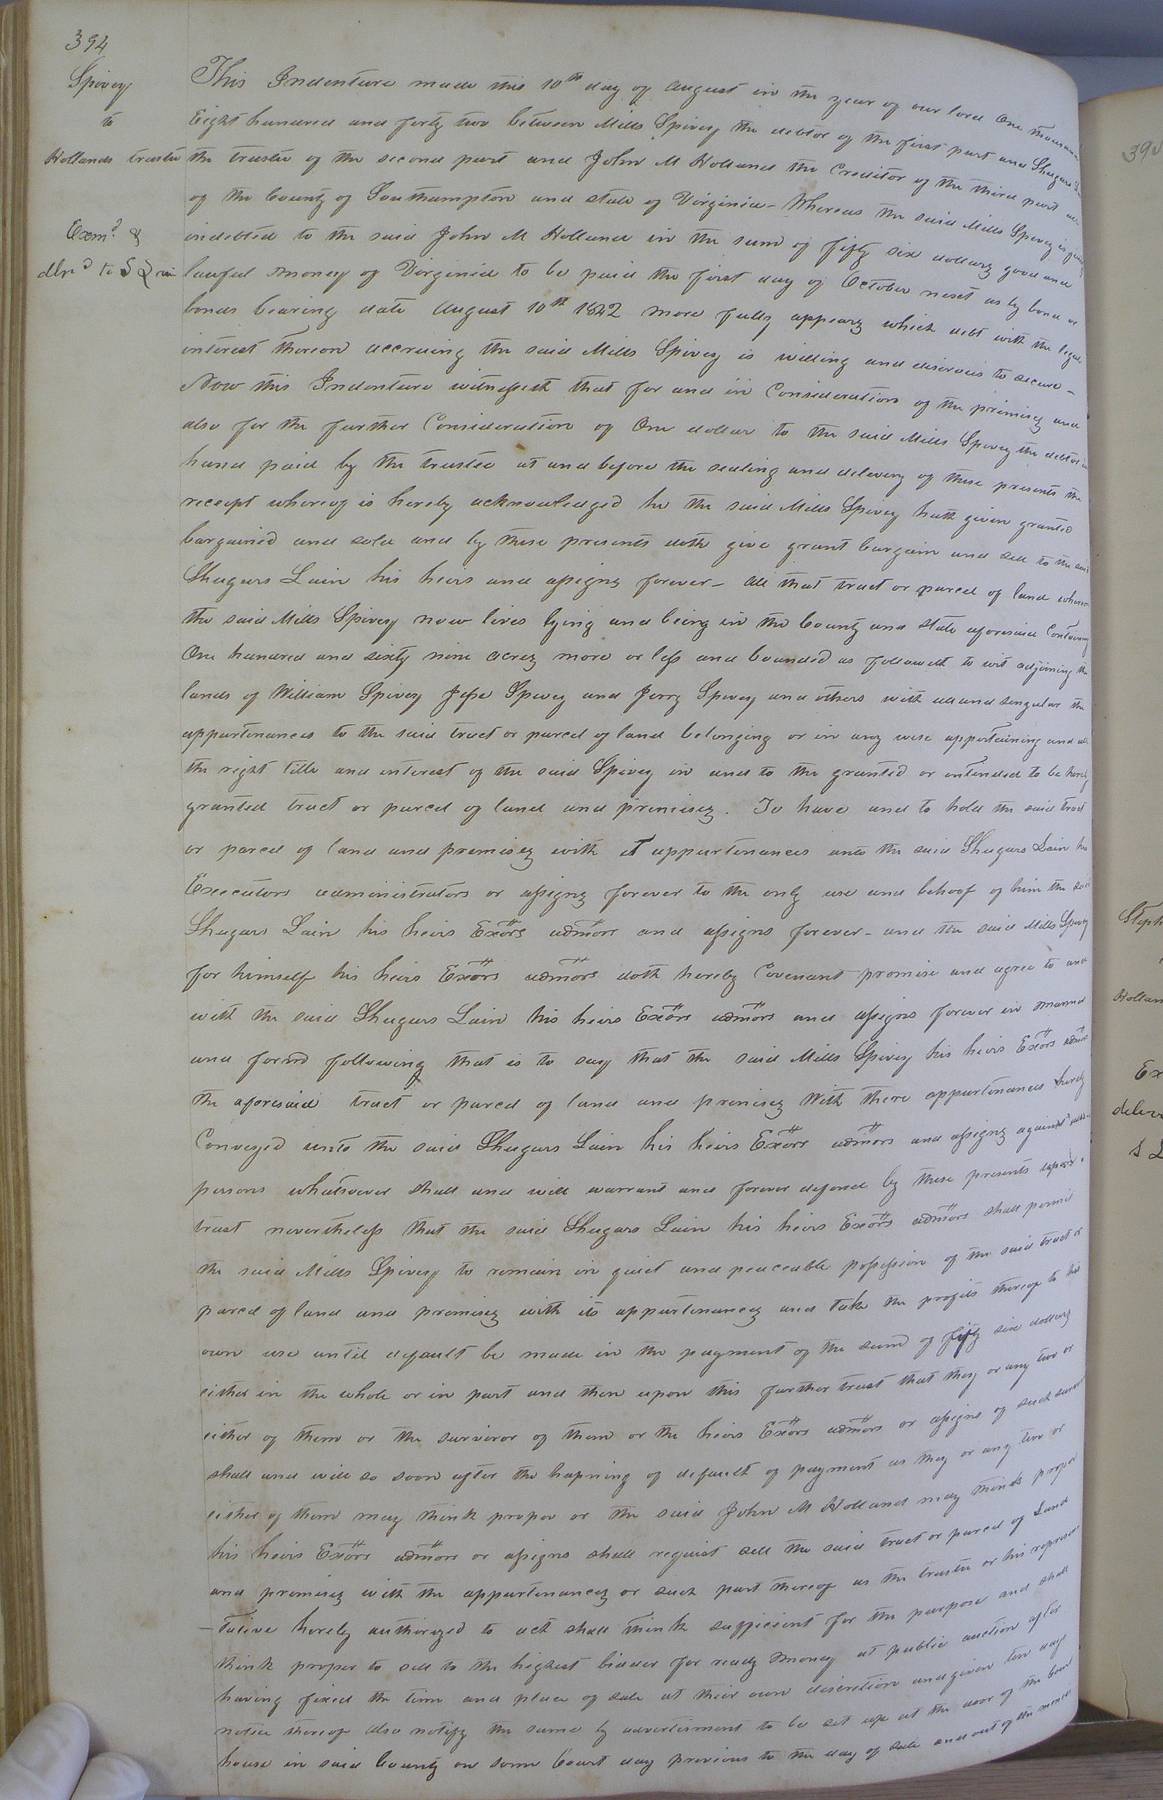 394
Spivey
to
Hollands trustee
Exmd &
dlvd to S Lain
This Indenture made this 10th day of August in the year of our lord One thousand
Eight hundred and forty two between Mills Spivey the debtor of the first part and Shugars Lain
the trustee of the second part and John M Holland the Creditor of the third part all
of the County of Southampton and state of Virginia - Whereas the said Mills Spivey is justly
indebted to the said John M Holland in the sum of fifty six dollars good and
lawful money of Virginia to be paid the first day of October next as by bond or
bonds bearing date August 10th 1842 more fully appears which debt with the legal
interest thereon accruing the said Mills Spivey is willing and desirous to secure -
Now this Indenture witnesseth that for and in Consideration of the premises and
also for the further Consideration of One dollar to the said Mills Spivey the debtor in
hand paid by the trustee at and before the sealing and delivery of these presents the
receipt whereof is hereby acknowledged he the said Mills Spivey hath given granted
bargained and sold and by these presents doth give grant bargain and sell to the said
Shugars Lain his heirs and assigns forever - All that tract or parcel of land whereon
the said Mills Spivey now lives lying and being in the County and state aforesaid Containing
One hundred and sixty nine acres more or less and bounded as followeth to wit adjoining the
lands of William Spivey Jesse Spivey and Jerry Spivey and others with all and singular the
appurtenances to the said tract or parcel of land belonging or in any wise appertaining and all
the right title and interest of the said Spivey in and to the granted or intended to be hereby
granted tract or parcel of land and premises. To have and to hold the said tract
or parcel of land and premises with it appurtenances unto the said Shugars Lain his
Executors administrators or assigns forever to the only use and behoof of him the said
Shugars Lain his heirs Exors admors and assigns forever - and the said Mills Spivey
for himself his heirs Exors admors doth hereby Covenant promise and agree to and
with the said Shugars Lain his heirs Exors admors and assigns forever in manner
and form following that is to say that the said Mills Spivey his heirs Exors admors
the aforesaid tract or parcel of land and premises With there appurtenances hereby
Conveyed unto the said Shugars Lain his heirs Exors admors and assigns against all
persons whatsoever shall and will warrant and forever defend by these presents upon
trust nevertheless that the said Shugars Lain his heirs Exors admors shall permit
the said Mills Spivey to remain in quiet and peaceable possession of the said tract or
parcel of land and premises with its appurtenances and take the profits thereof to his
own use until default be made in the payment of the sum of fifty six dollars
either in the whole or in part and then upon this further trust that they or any two or
either of them or the survivor of them or the heirs Exors admors or assigns of such survivor
shall and will so soon after the hapning of default of payment as they or any two or
either of them may think proper or the said John M Holland may think proper
his heirs Exors admors or assigns shall request sell the said tract or parcel of Land
and premises with the appurtenances or such part thereof as the trustee or his represen
-tative hereby authorized to act shall think sufficient for the purpose and shall
think proper to sell to the highest bidder for ready money at public auction after
having fixed the time and place of sale at their own discretion and given ten days
notice thereof also notify the same by advertisement to be set up at the door of the Court
house in said County on some Court day previous to the day of sale and out of the monies
Steph
Hollan
Ex
deliv
S L